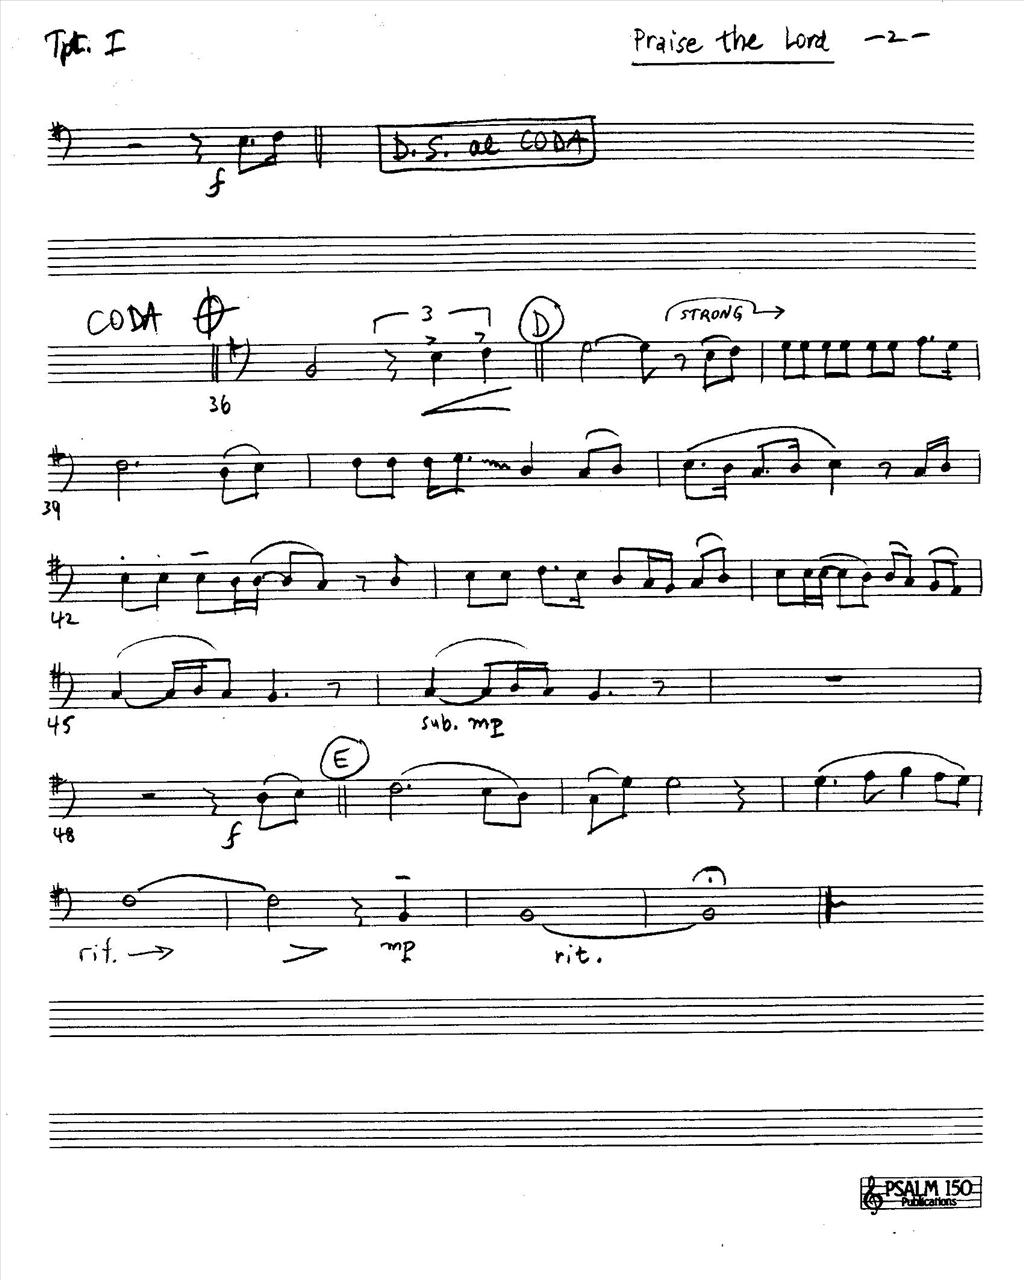 Tpt. I
Praise the Lord -2-
f
D.S. al CODA
CODA
3
D
STRONG
36
39
42
45
sub. mp
E
48
f
rit.
mp
rit.
PSALM 150
Publications